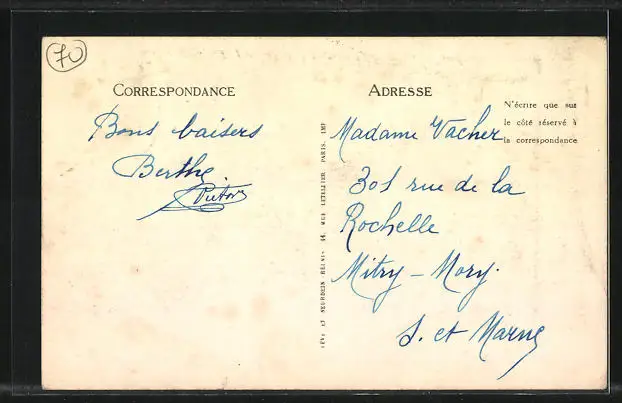 70
CORRESPONDANCE
Bons baisers
Berthe
ADRESSE
N'écrire que sur
le côté réservé à
la correspondance
Madame Vacher
301 rue de la
Rochelle
Mitry - Mory.
S. et Marne
NEURDEIN RÉUNIS 44, RUE LETELLIER, PARIS, IMP